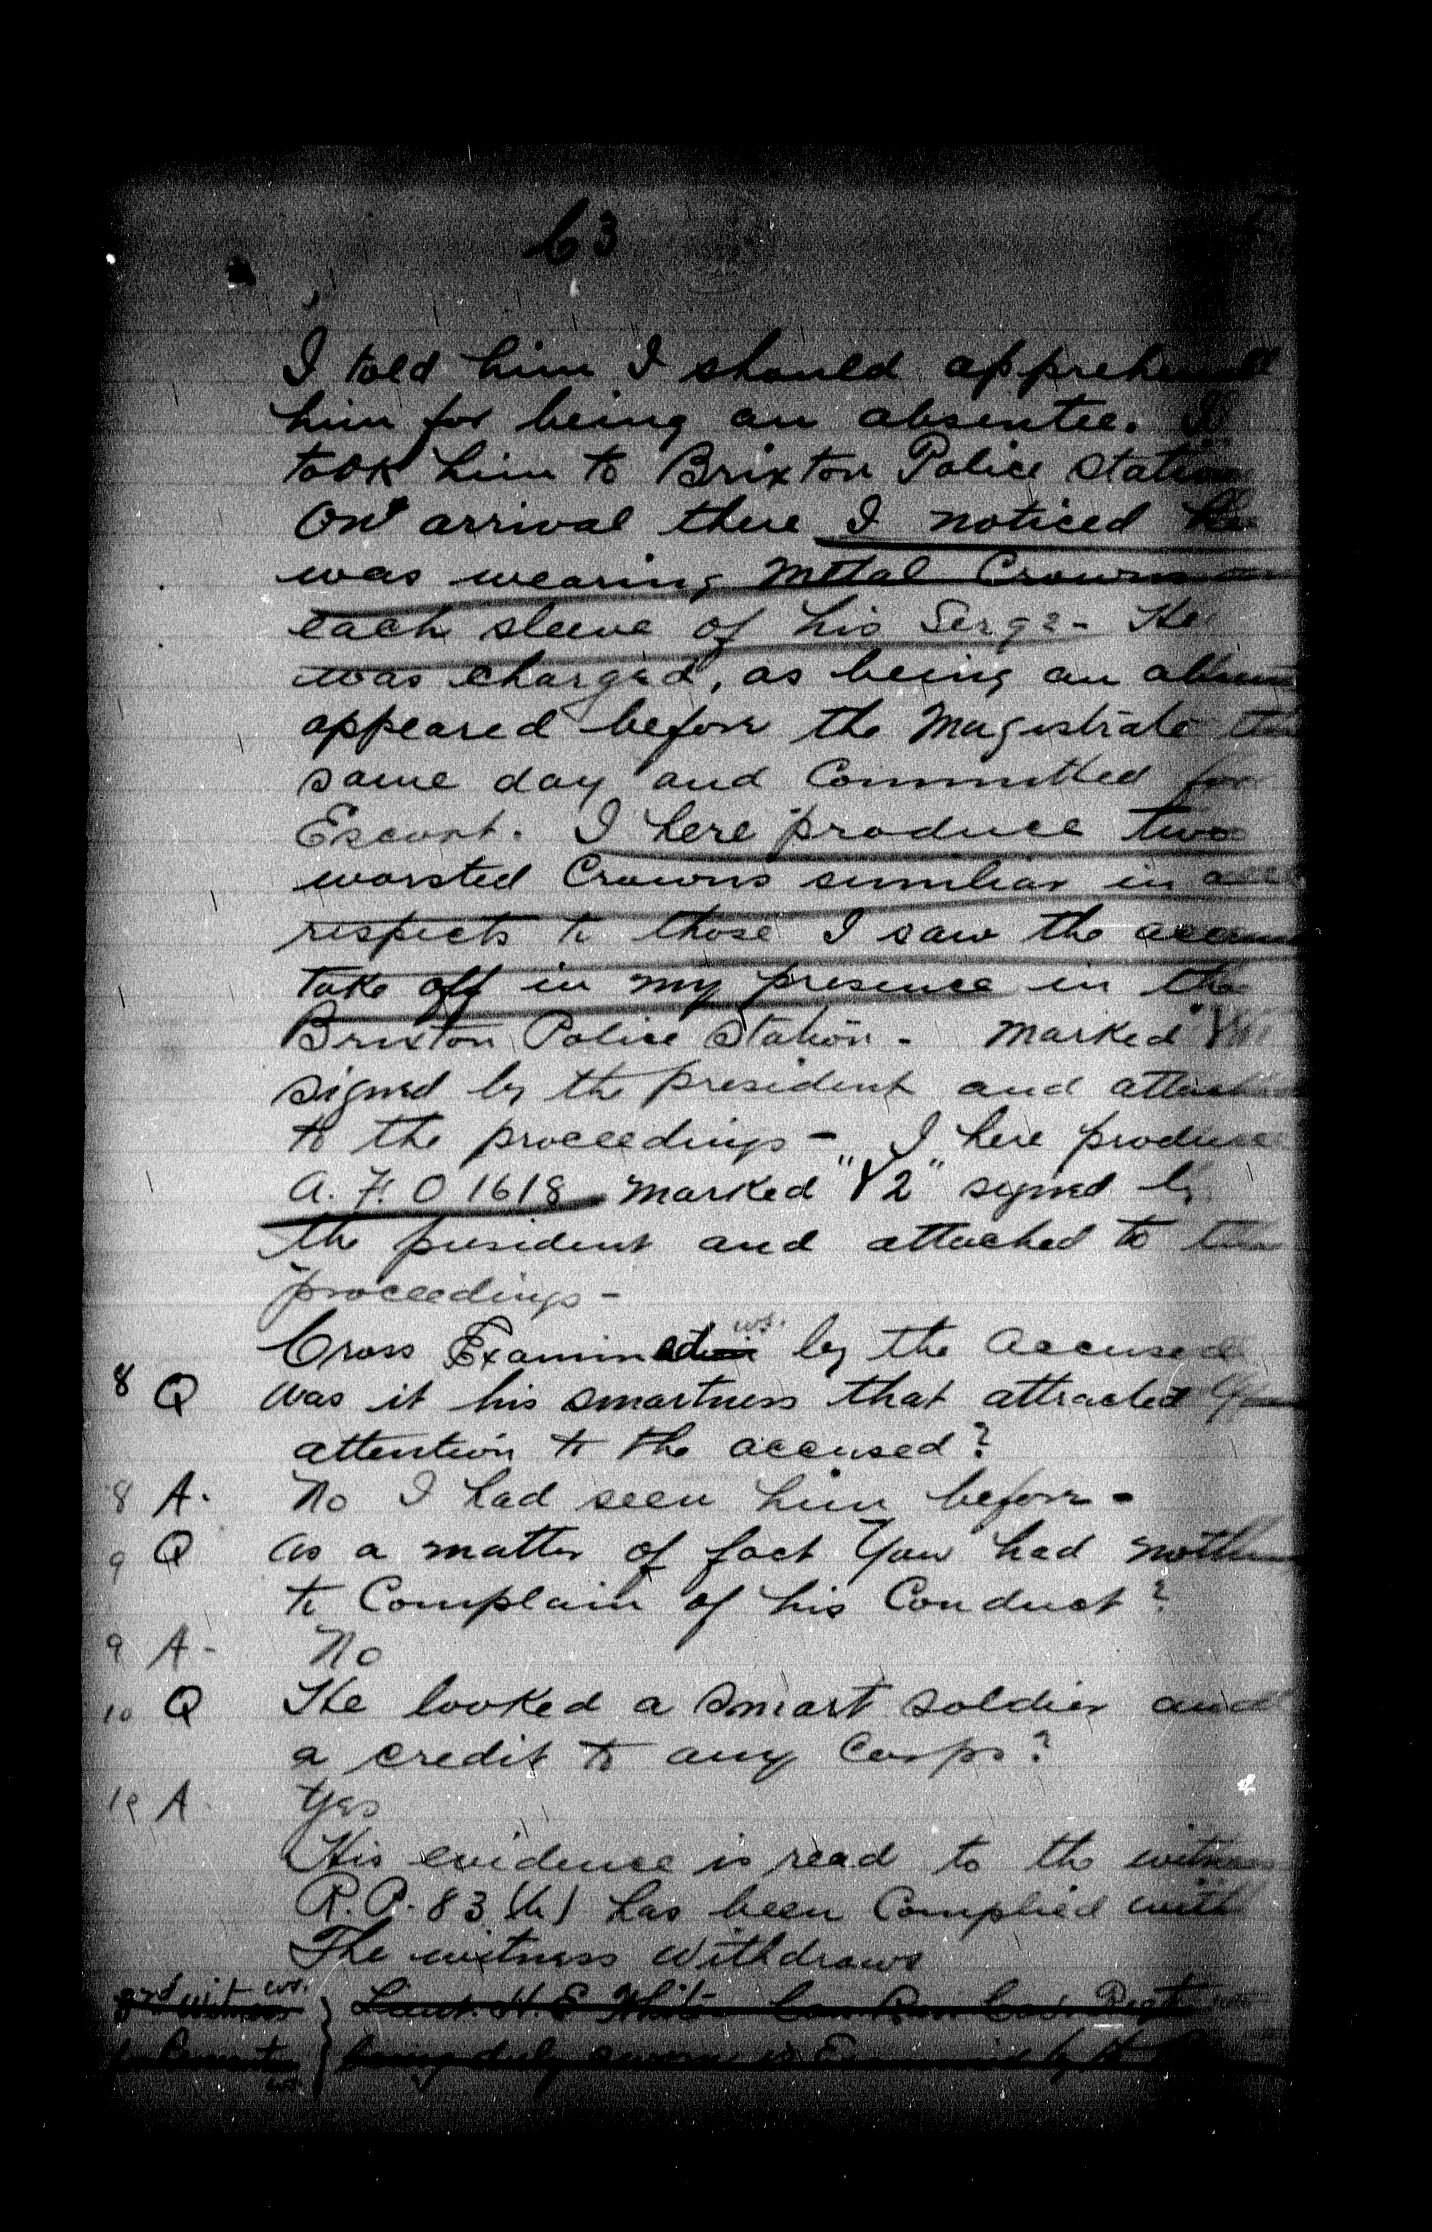 63
I told him I should apprehend
him for being an absentee. I
took him to Brixton Police Station
On arrival there I noticed he
was wearing metal Crowns on
each sleeve of his Serge - He
was charged, as being an
appeared before the Magistrate the
same day and Committed for
Escort. I here produce two
worsted Crowns similiar in all
respects to those I saw the accused
take off in my presence in the
Brixton Police Station - Marked
signed by the president and attached
to the proceedings - I here produce
A. F. O 1618 marked "Y2" signed by
the president and attached to the
proceedings -
Cross Examined by the accused
8 Q Was it his smartness that attracted your
attention to the accused?
8 A. No I had seen him before -
9 Q As a matter of fact you had nothing
to Complain of his Conduct?
9 A - No
10 Q He looked a smart soldier and
a credit to any Corps?
10 A Yes
His evidence is read to the witness
R.P. 83 (b) has been Complied with
The witness withdraws
witness Lieut. H. E. White Regt
being duly sworn is Examined by the